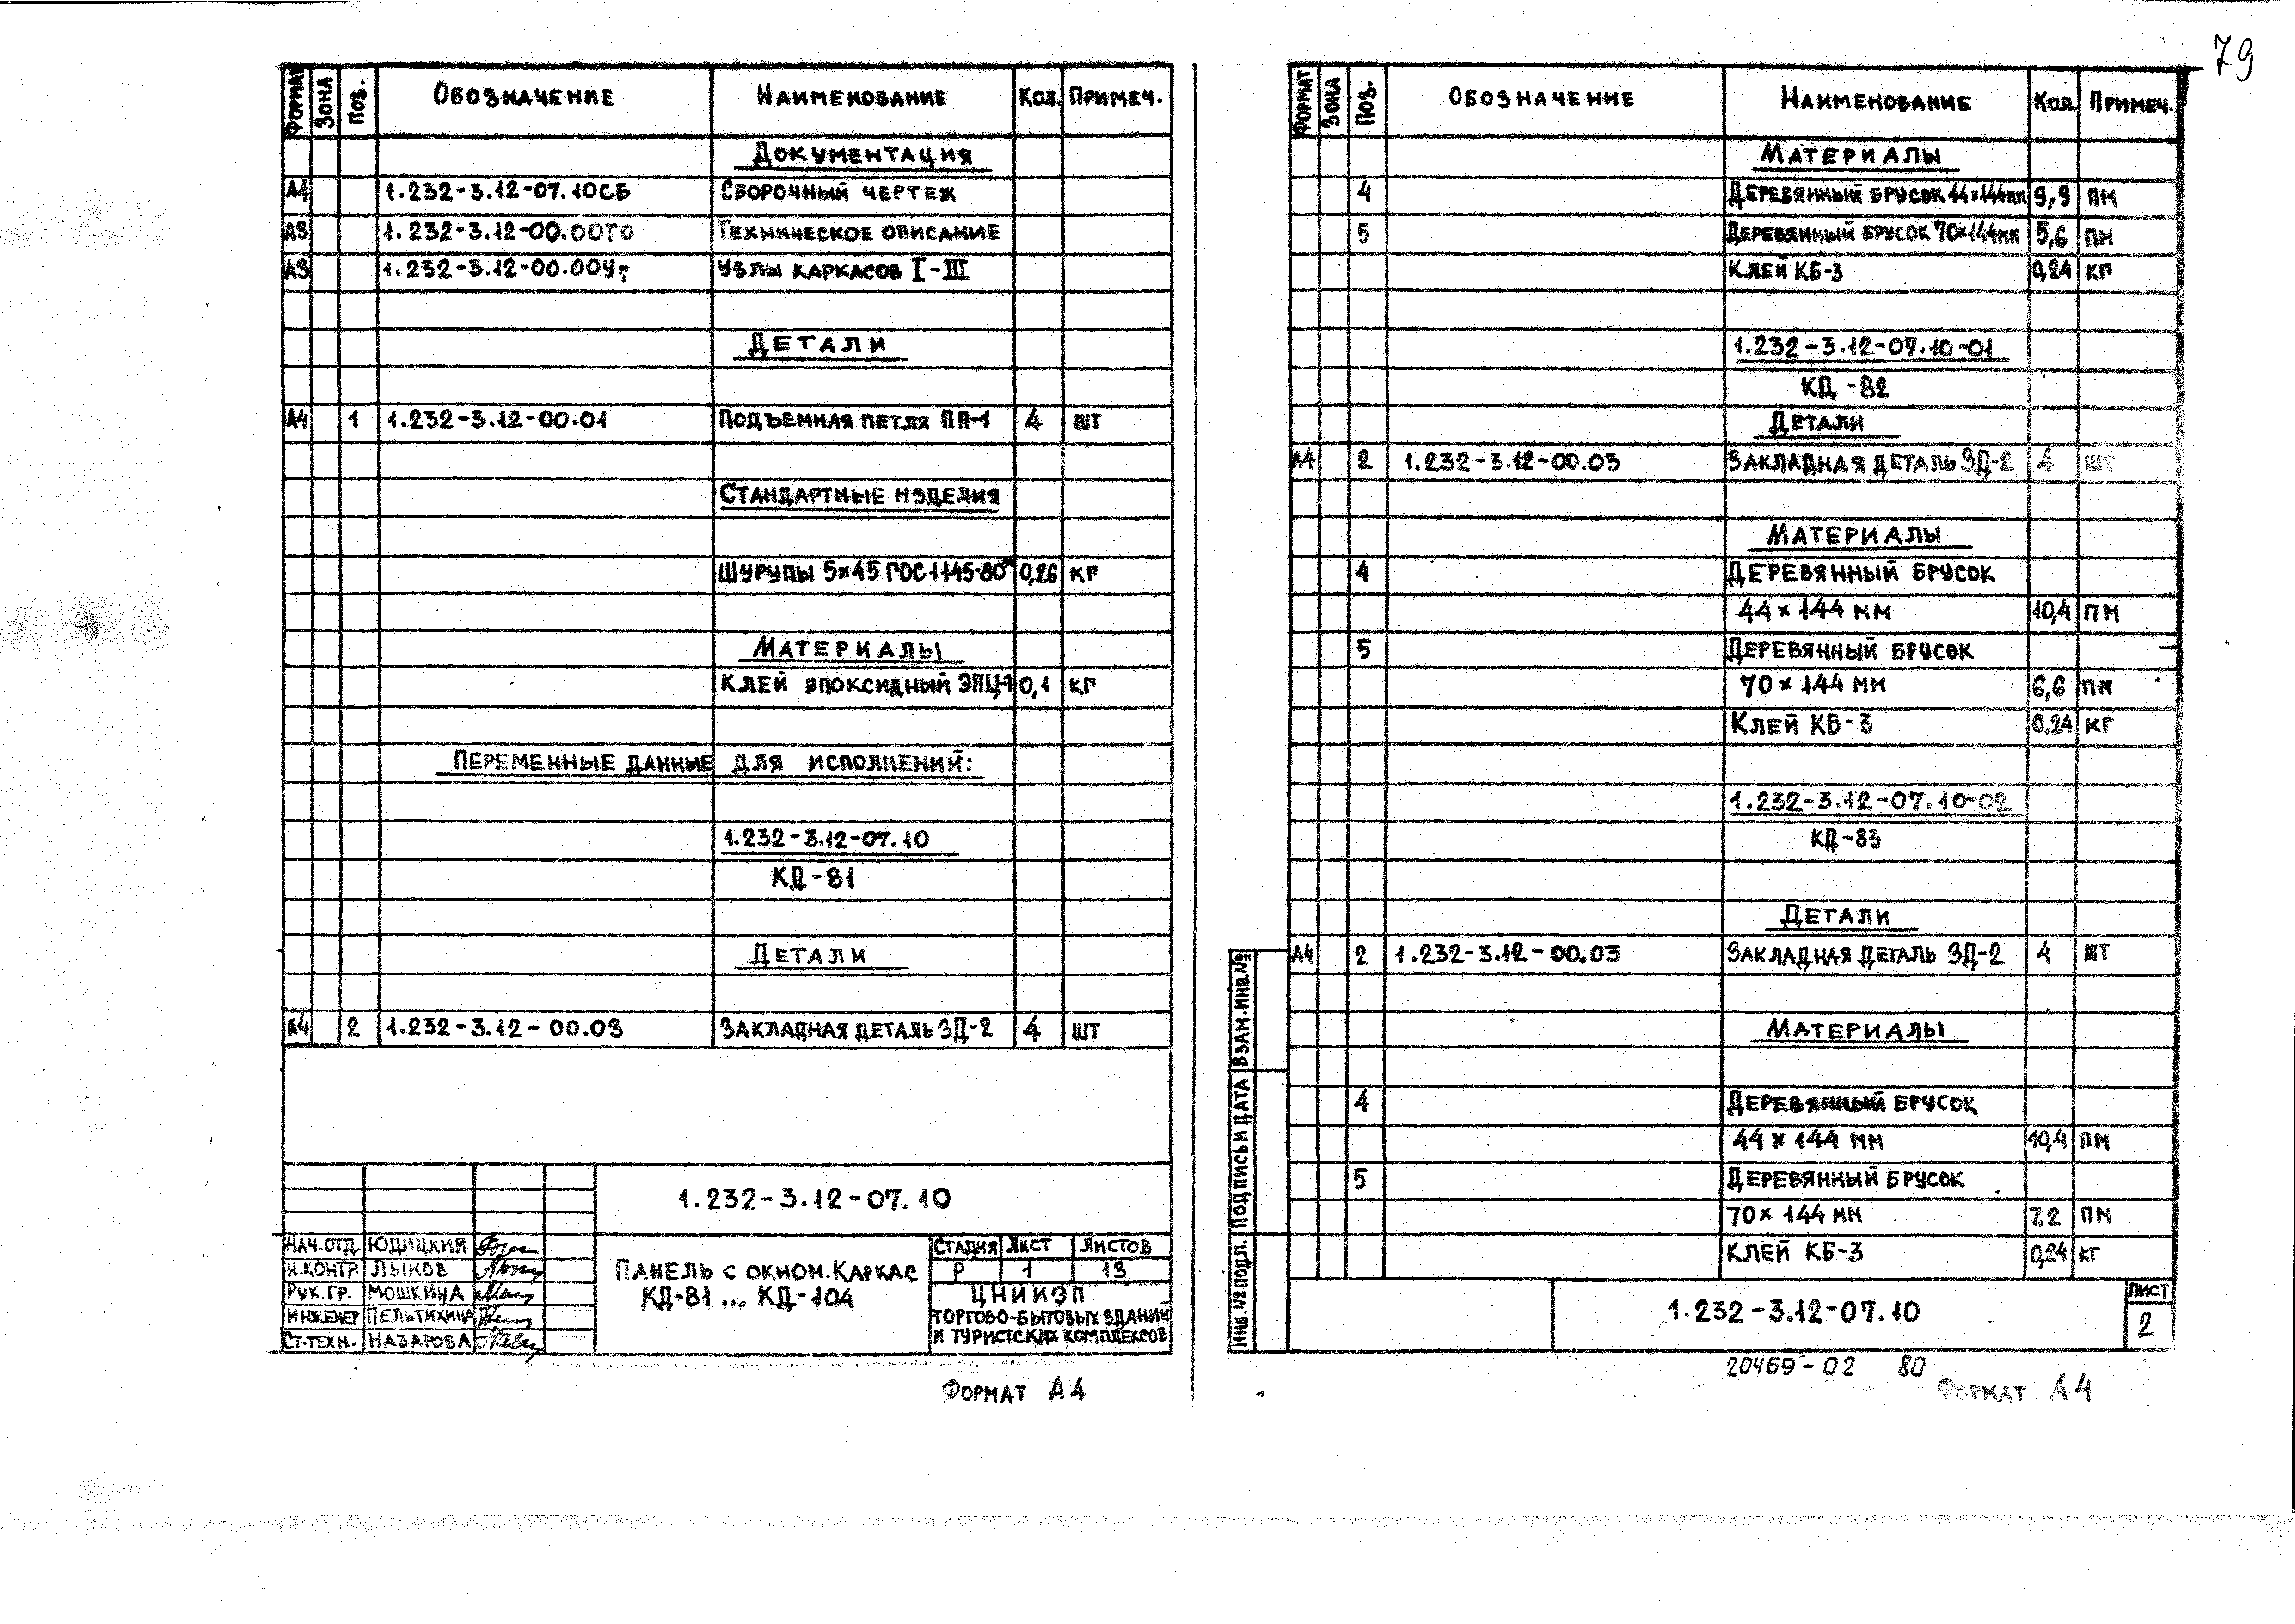 79
Формат Зона Поз. Обозначение Наименование Кол. Примеч.
Документация
А1 1.232-3.12-07.10СБ Сборочный чертеж
А3 1.232-3.12-00.00ТО Техническое описание
А3 1.232-3.12-00.00Уз Узлы каркасов I-III
Детали
А4 1 1.232-3.12-00.01 Подъемная петля ПП-1 4 шт
Стандартные изделия
Шурупы 5×45 ГОСТ 1145-80* 0,26 кг
Материалы
Клей эпоксидный ЭПЦ-1 0,1 кг
Переменные данные для исполнений:
1.232-3.12-07.10
КД-81
Детали
А4 2 1.232-3.12-00.03 Закладная деталь ЗД-2 4 шт
1.232-3.12-07.10
Нач.отд. Юдицкий
Н.контр. Лыков
Рук.гр. Мошкина
Инженер Пельтихина
Ст.техн. Назарова
Панель с окном. Каркас
КД-81 ... КД-104
Стадия Лист Листов
Р 1 13
ЦНИИЭП
торгово-бытовых зданий
и туристских комплексов
Формат А4
Формат Зона Поз. Обозначение Наименование Кол. Примеч.
Материалы
4 Деревянный брусок 44×144мм 9,9 пм
5 Деревянный брусок 70×144мм 5,6 пм
Клей КБ-3 0,24 кг
1.232-3.12-07.10-01
КД-82
Детали
А4 2 1.232-3.12-00.03 Закладная деталь ЗД-2 4 шт
Материалы
4 Деревянный брусок
44×144 мм 10,4 пм
5 Деревянный брусок
70×144 мм 6,6 пм
Клей КБ-3 0,24 кг
1.232-3.12-07.10-02
КД-83
Детали
А4 2 1.232-3.12-00.03 Закладная деталь ЗД-2 4 шт
Материалы
4 Деревянный брусок
44×144 мм 10,4 пм
5 Деревянный брусок
70×144 мм 7,2 пм
Клей КБ-3 0,24 кг
Инв.№ подл. Подпись и дата Взам.инв.№
1.232-3.12-07.10
Лист
2
20469-02 80
Формат А4